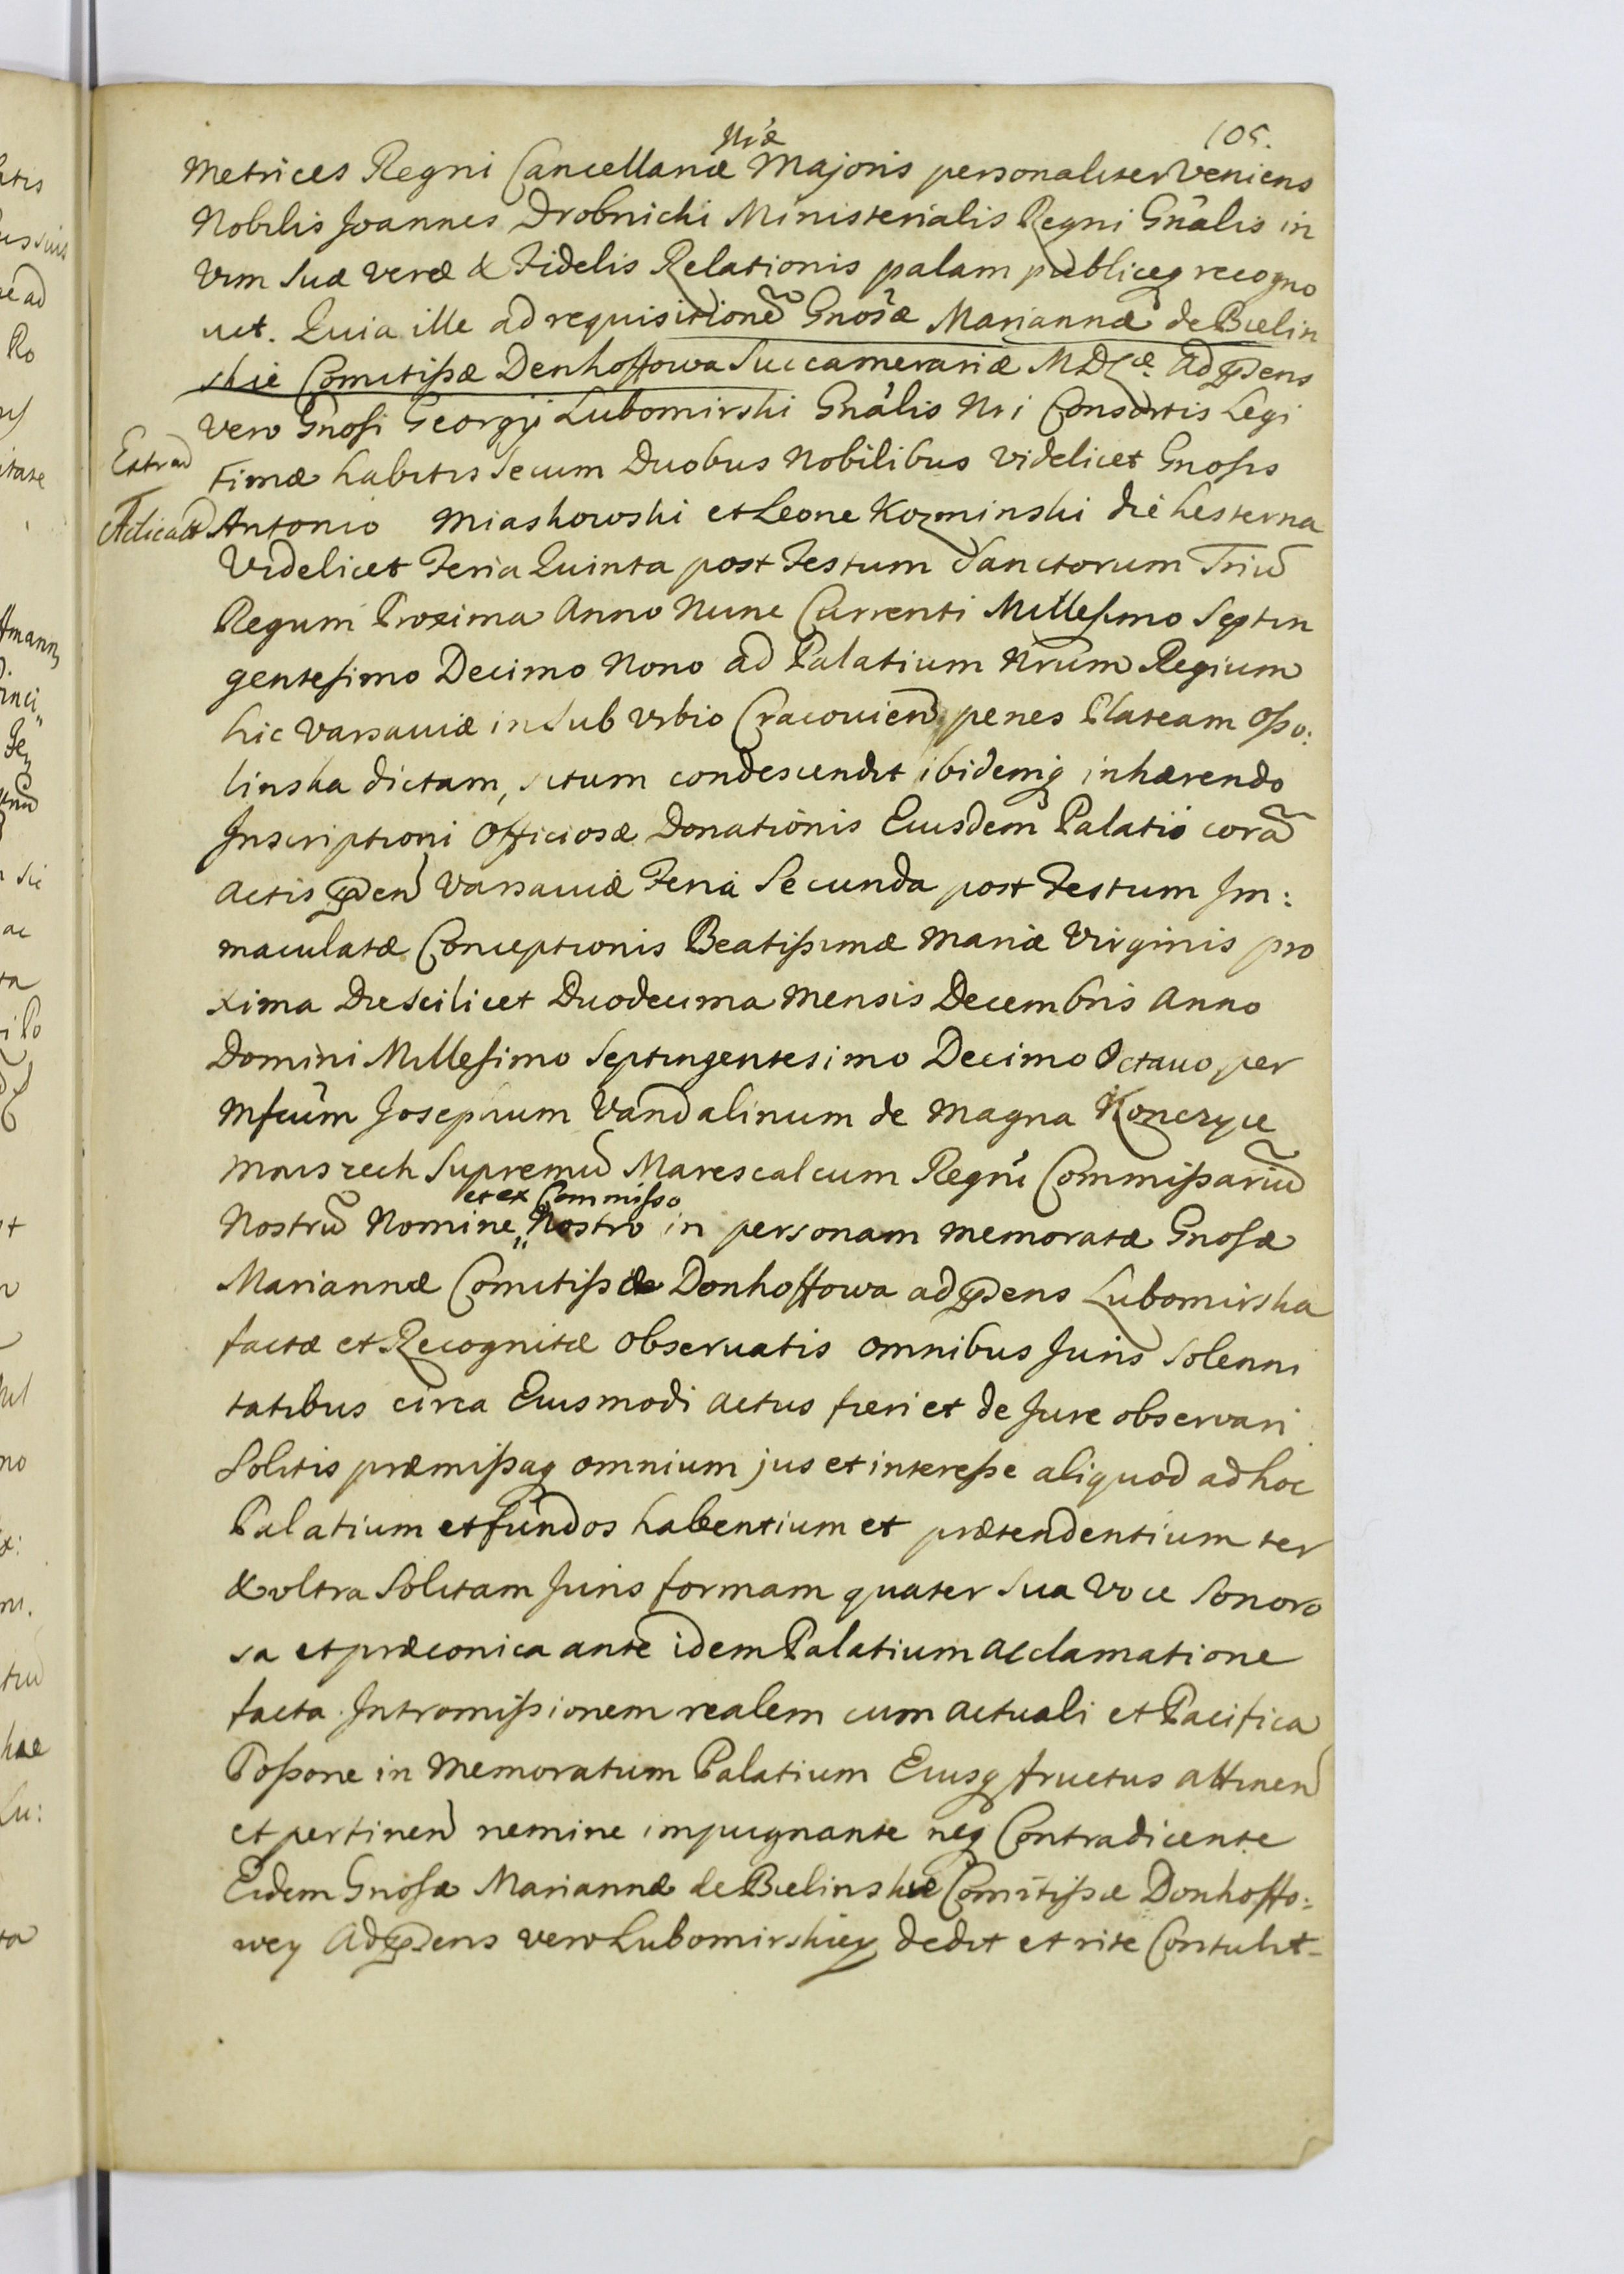 105.
Metrices Regni Cancellariæ Nræ Majoris personaliter Veniens
Nobilis Joannes Drobnicki Ministerialis Regni Gnãlis in
Vim Suæ veræ & Fidelis Relationis palam publiceq recogno
uit. Quia ille ad requisitionẽ Gnosæ Mariannæ de Bielin
skie Comitißæ Denhoffowa Succamerariæ MDLæ. ad prsens
vero Gnosi Georgij Lubomirski Gnãlis Nri Consortis Legi
Extrad
timæ habitis Secum Duobus Nobilibus videlicet Gnosis
Antonio Miaskowski et Leone Kozminski die hesterna
Videlicet Feria Quinta post Festum Sanctorum Triũ
Regum Proxima Anno Nunc Currenti Millesimo Septin
gentesimo Decimo Nono ad Palatium Nrum Regium
hic Varsauiæ in Sub Vrbio Cracouien penes Plateam Oßo:
linska dictam, situm condescendit ibidemq inhærendo
Inscriptioni Officiosæ Donationis Eiusdem Palatio corã
Actis prden Varsauiæ Feria Secunda post Festum Im:
maculatæ Conceptionis Beatißimæ Mariæ Virginis pro
xima Die Scilicet Duodecima Mensis Decembris Anno
Domini Millesimo Septingentesimo Decimo Octauo per
Mfcum Josephum Vandalinum de Magna Konczyce
Mniszech Supremũ Marescalcum Regni Commißariũ
Nostrũ Nomine et ex Commisso Nostro in personam memoratæ Gnosæ
Mariannæ Comitißæ Donhoffowa ad prsens Lubomirska
factæ et Recognitæ observatis omnibus Juris Solenni
tatibus circa Eiusmodi actus fieri et de Jure observari
Solitis præmißaq omnium jus et intereße aliquod ad hoc
Palatium et fundos habentium et prætendentium ter
& vltra Solitam Juris formam quater Sua Voce Sonoro
sa et præconica ante idem Palatium acclamatione
facta Intromißionem realem cum actuali et Pacifica
Poßone in Memoratum Palatium Eiusq fructus attinen
et pertinen nemine impugnante neq Contradicente
Eidem Gnosæ Mariannæ de Bielinskie Comitißæ Donhoffo:
wey Ad prsens vero Lubomirskiey dedit et rite Contulit